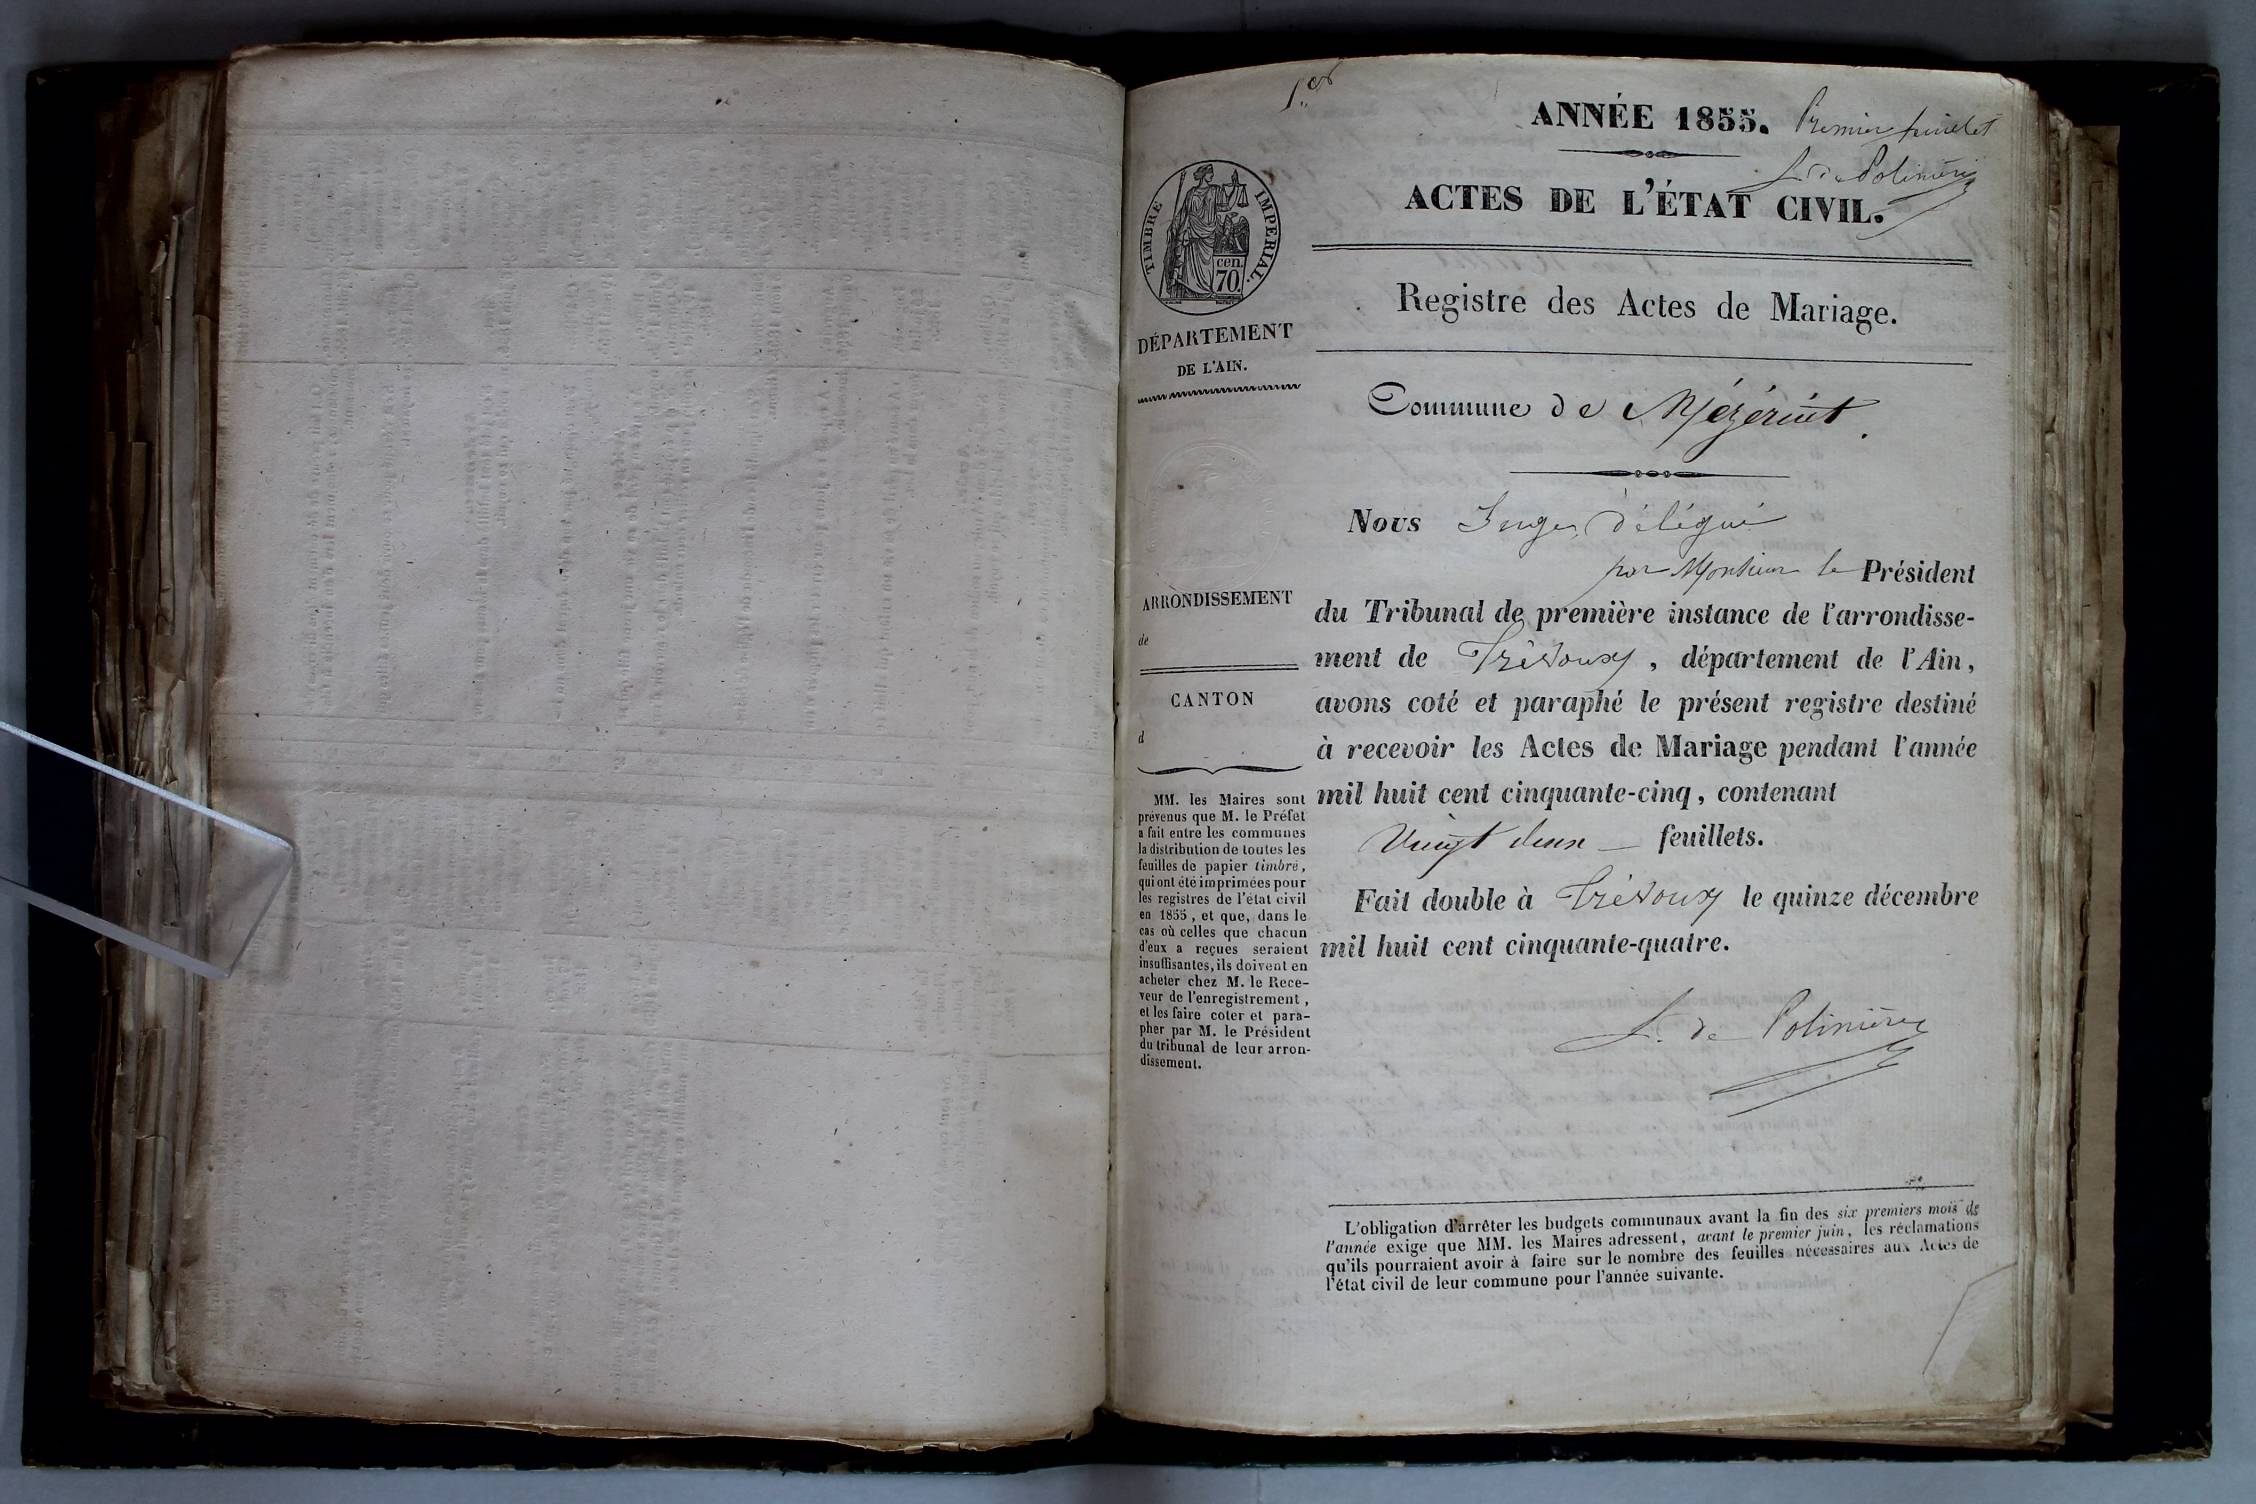 1.er
ANNÉE 1855. Premier feuillet
L. de Polinière
ACTES DE L'ÉTAT CIVIL.
Registre des Actes de Mariage.
TIMBRE IMPERIAL.
cen.
70.
DÉPARTEMENT
DE L'AIN.
ARRONDISSEMENT
de
CANTON
d
MM. les Maires sont
prévenus que M. le Préfet
a fait entre les communes
la distribution de toutes les
feuilles de papier timbré,
qui ont été imprimées pour
les registres de l'état civil
en 1855, et que, dans le
cas où celles que chacun
d'eux a reçues seraient
insuffisantes, ils doivent en
acheter chez M. le Rece-
veur de l'enregistrement,
et les faire coter et para-
pher par M. le Président
du tribunal de leur arron-
dissement.
Commune de Mézériat.
Nous Juge, délégué
par Monsieur le Président
du Tribunal de première instance de l'arrondisse-
ment de Trévoux, département de l'Ain,
avons coté et paraphé le présent registre destiné
à recevoir les Actes de Mariage pendant l'année
mil huit cent cinquante-cinq, contenant
Vingt deux feuillets.
Fait double à Trévoux le quinze décembre
mil huit cent cinquante-quatre.
L. de Polinière
L'obligation d'arrêter les budgets communaux avant la fin des six premiers mois de
l'année exige que MM. les Maires adressent, avant le premier juin, les réclamations
qu'ils pourraient avoir à faire sur le nombre des feuilles nécessaires aux Actes de
l'état civil de leur commune pour l'année suivante.